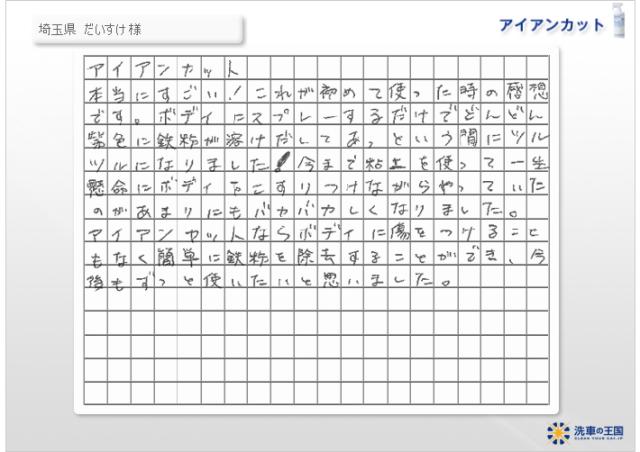 埼玉県 だいすけ 様
アイアンカット
アイアンカット
本当にすごい！これが初めて使った時の感想
です。ボディにスプレーするだけでどんどん
紫色に鉄粉が溶けだしてあっという間にツル
ツルになりました 今まで粘土を使って一生
懸命にボディをこすりつけながらやっていた
のがあまりにもバカバカしくなりました。
アイアンカットならボディに傷をつけること
もなく簡単に鉄粉を除去することができ、今
後もずっと使いたいと思いました。
洗車の王国
CLEAN YOUR CAR.JP